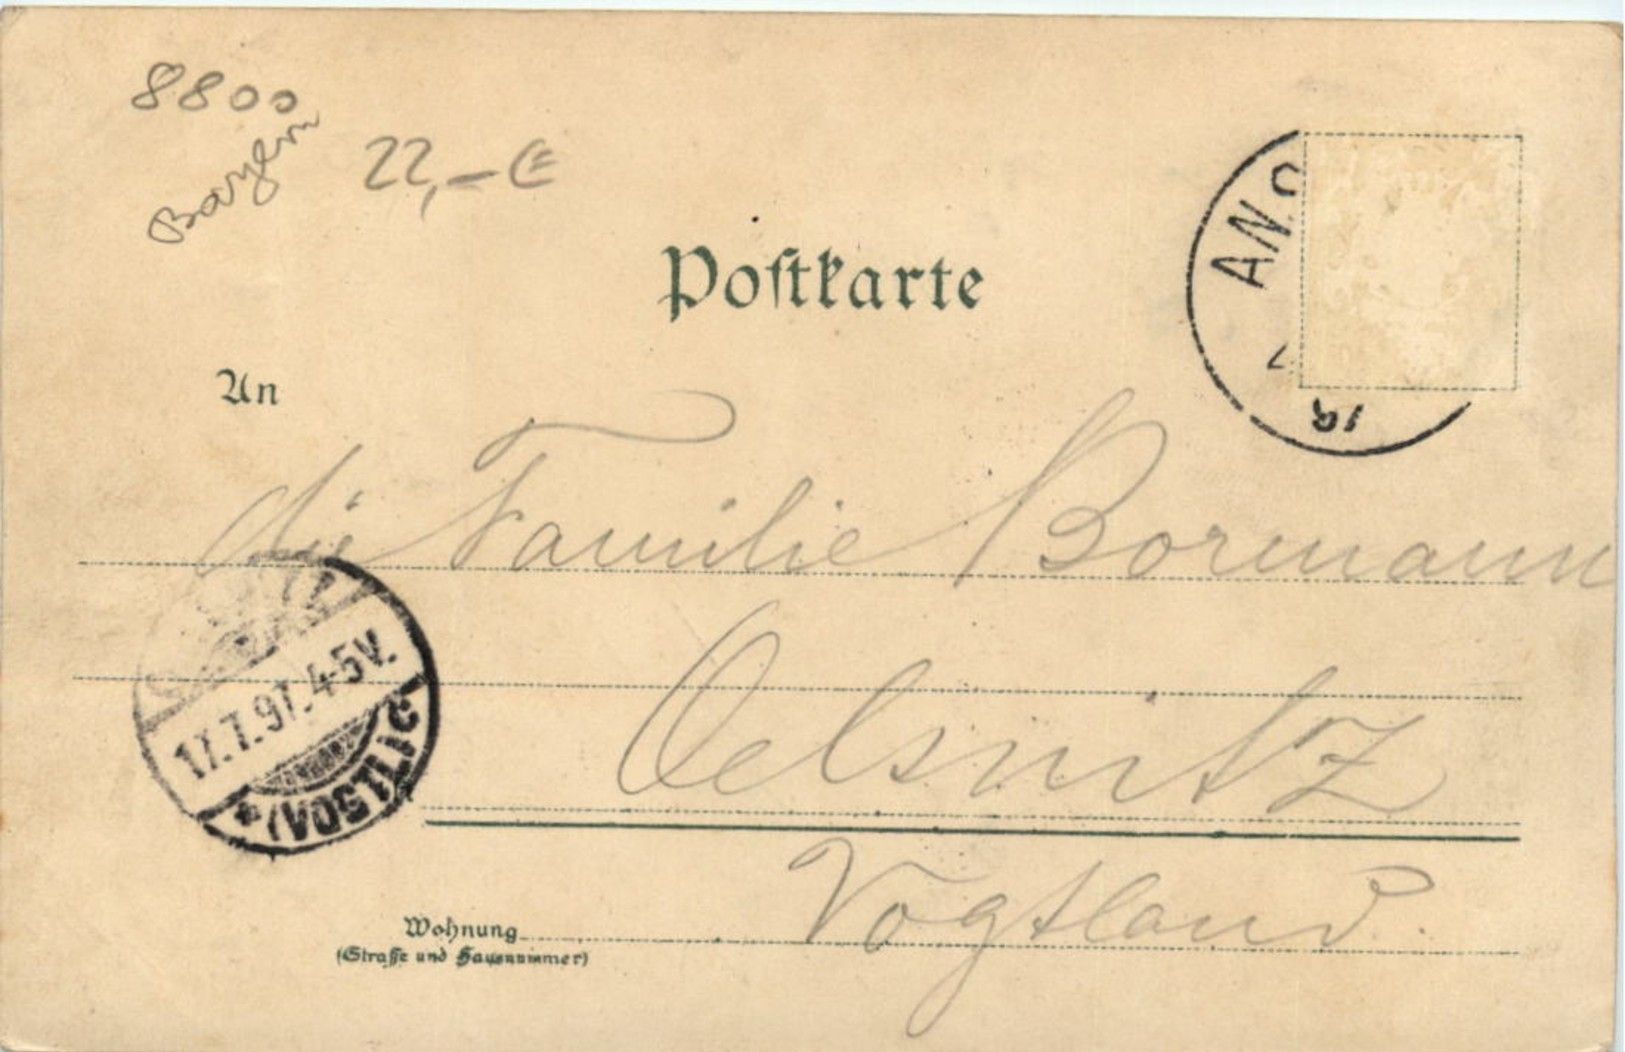 8800
Bayern
22,-€
Postkarte
AN
An
die Familie Bormann
17.7.97.4-5V.
(VOGTL)C
Oelsnitz
Vogtland.
Wohnung
(Straße und Hausnummer)